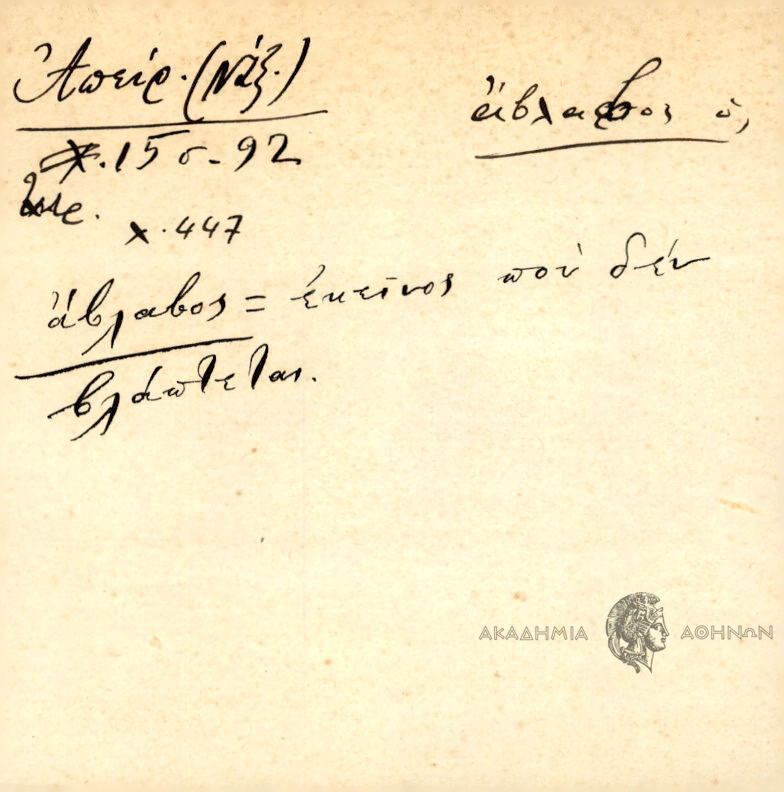 Ἀπείρ. (Νάξ.)
ἄβλαβος ὁ,
χ. 15 σ. 92
χ. 447
ἄβλαβος = ἐκεῖνος πού δέν
βλάπτεται.
ΑΚΑΔΗΜΙΑ ΑΘΗΝΩΝ